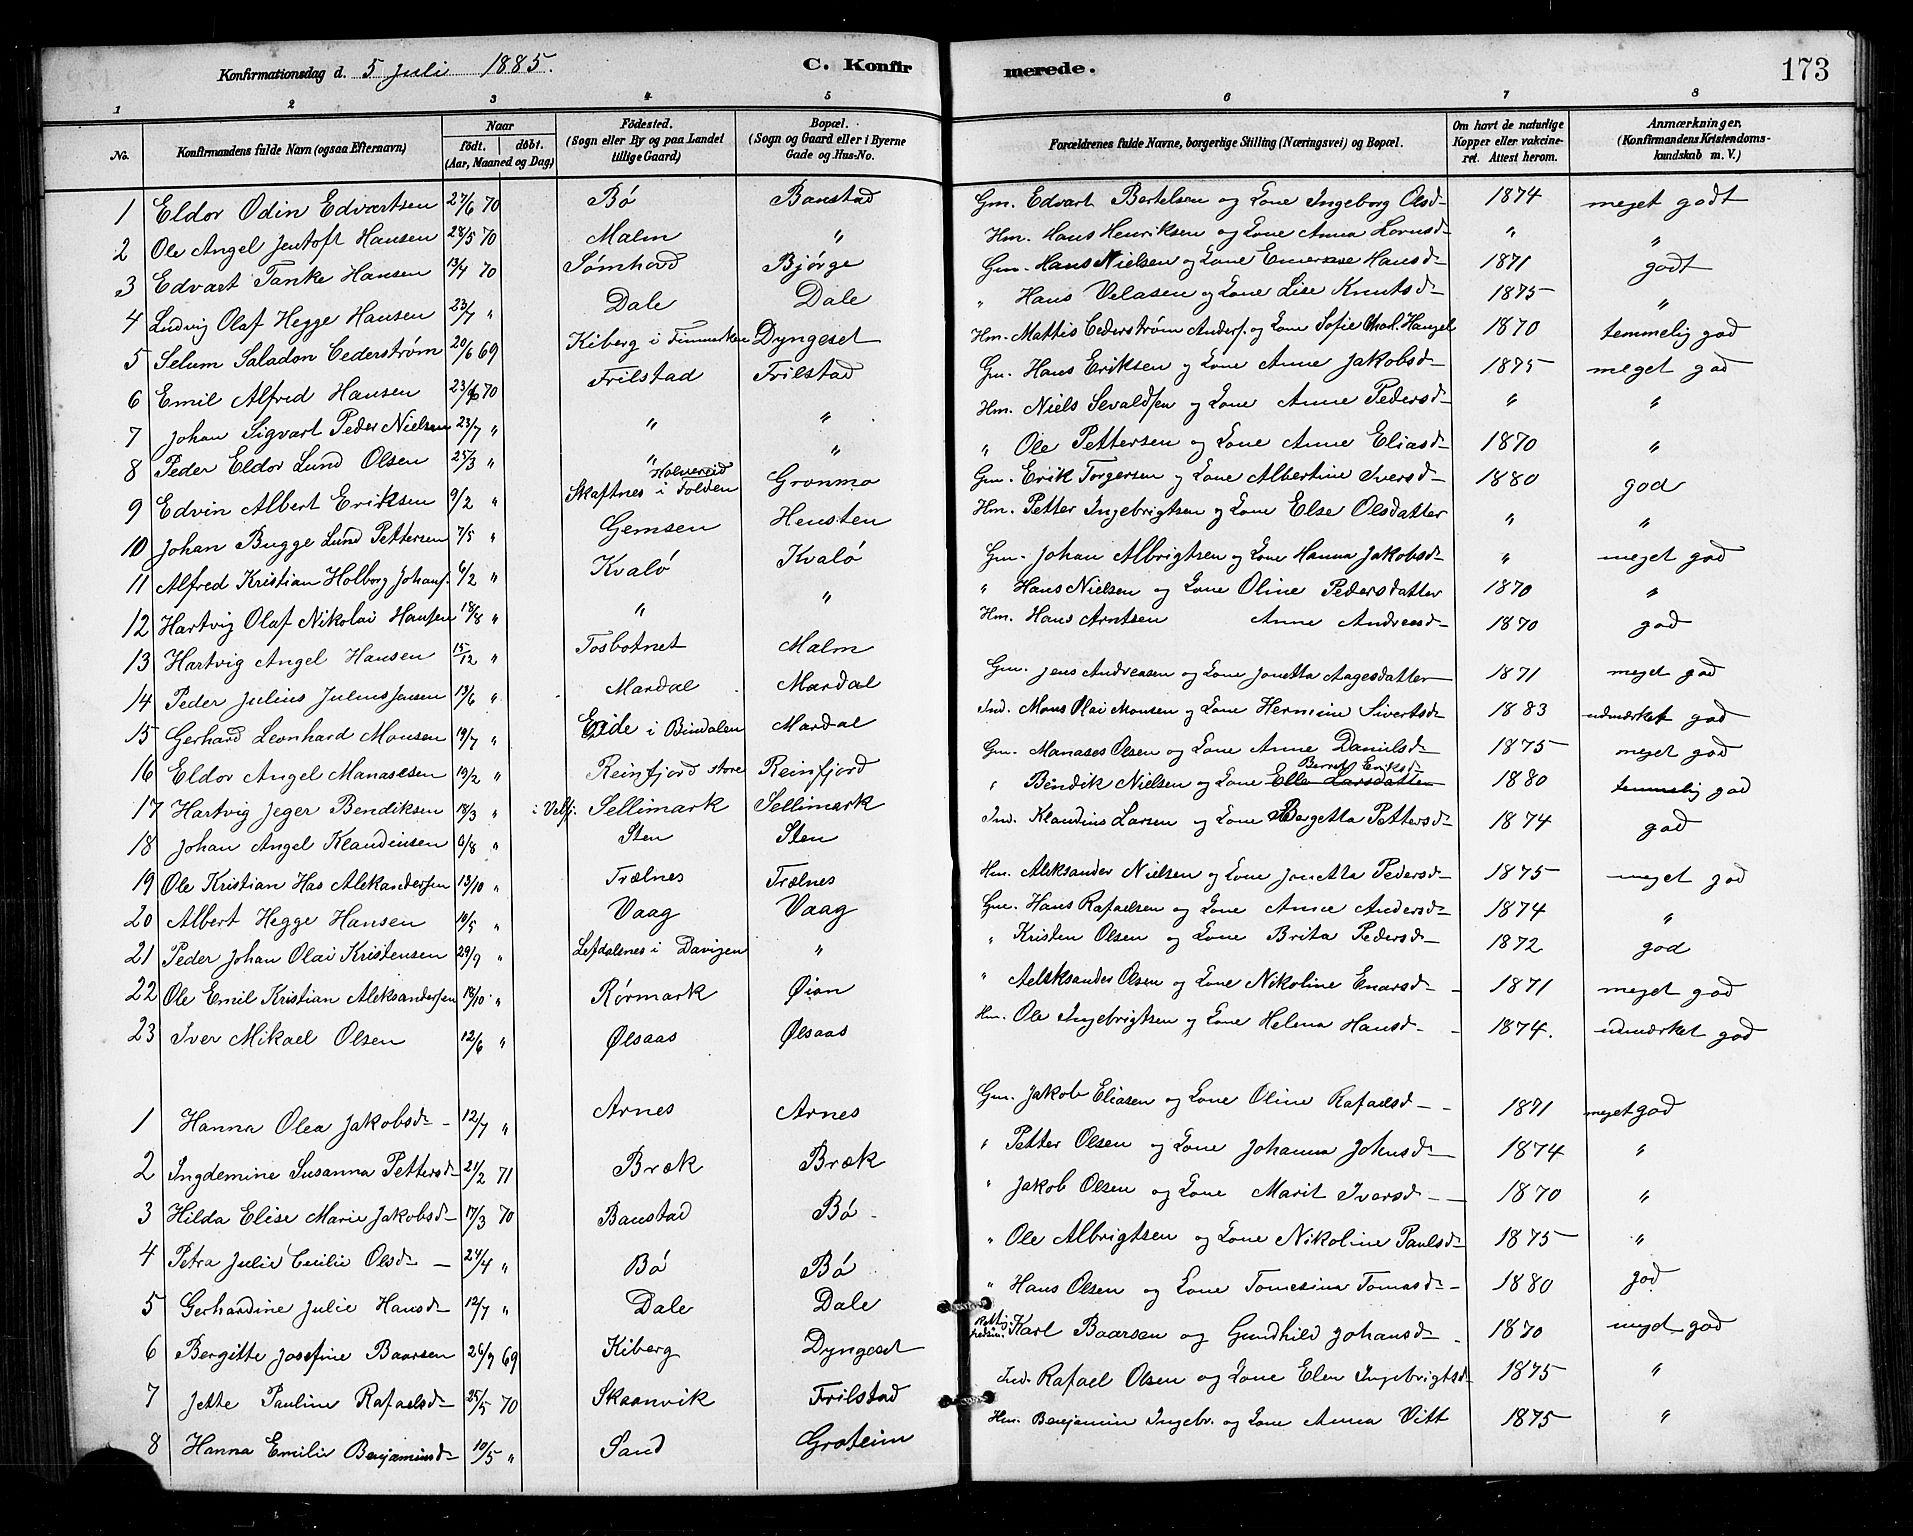 Konfirmationsdag d. 5 Juli 1885. C. Konfirmerede. 173
1 2 3 4 5 6 7 8
No. Konfirmandens fulde Navn (ogsaa Efternavn) Naar födt. döbt. (Aar, Maaned og Dag) Födested. (Sogn eller By og paa Landet tillige Gaard) Bopæl. (Sogn og Gaard eller i Byerne Gade og Hus-No. Forældrenes fulde Navne, borgerlige Stilling (Næringsvei) og Bopæl. Om havt de naturlige Kopper eller vakcineret. Attest herom. Anmærkninger, (Konfirmandens Kristendomskundskab m. V.)
1 Eldor Odin Edvartsen 27/6 70 Bø Banstad Gm. Edvart Bertelsen og Kone Ingeborg Olsd. 1874 meget godt
2 Ole Angel Jentoft Hansen 28/5 70 Malm " Hm. Hans Henriksen og Kone Anna Lornsd. " "
3 Edvart Tanke Hansen 13/7 70 Sømhovd Bjørge Gm. Hans Nielsen og Kone Hansd. 1871 godt
4 Ludvig Olaf Hegge Hansen 23/7 " Dale Dale " Hans Velasen og Kone Lise Knutsd. 1875 "
5 Selum Saladon Cederstrøm 20/6 69 Kiberg i Finmarken Dyngeset Hm. Mattis Cederstrøm Anders. og Kone Sofie Charl. Hansd 1870 temmelig god
6 Emil Alfred Hansen 70 Frilstad Frilstad Gm. Hans Eriksen og Kone Anne Jakobsd. 1875 meget god
7 Johan Sigvart Peder Nielsen 23/7 " " " Hm. Niels Sevaldsen og Kone Anne Pedersd. " "
8 Peder Eldor Lund Olsen 25/3 " " " " Ole Pettersen og Kone Anne Eliasd. 1870 "
9 Edvin Albert Eriksen 9/2 " Skaftnes i Folden Grønmo Gm. Erik Torgersen og Kone Albertine Iversd. 1880 god
10 Johan Bugge Lund Pettersen 7/5 " Gemsen Hensten Hm. Petter Ingebrigtsen og Kone Else Olsdatter " "
11 Alfred Kristian Holborg Johans. 6/2 " Kvalø Kvalø Gm. Johan Albrigtsen og Kone Hanna Jakobsd. " meget god
12 Hartvig Olaf Nikolai Hansen 18/8 " " " " Hans Nielsen og Kone Oline Pedersdatter 1870 "
13 Hartvig Angel Hansen 15/12 " Tosbotnet Malm Hm. Hans Arntsen Anne Andreasd. 1870 god
14 Peder Julius Julius Jensen 13/6 " Mardal Mardal Gm. Jens Andreasen og Kone Jonetta Aagesdatter 1871 meget god
15 Gerhard Leonhard Monsen 19/7 " Eide i Bindalen Mardal Ind. Mons Olai Monsen og Kone Hermine Sivertsd. 1883 udmærket god
16 Eldor Angel Manassen 19/2 " Reinfjord store Reinfjord Gm. Manases Olsen og Kone Anne Danielsd. 1875 meget god
17 Hartvig Jeger Bendiksen 18/3 " i Velfj. Sellimark Sellimark " Bendik Nielsen og Kone Elle Larsdatter Beret Eriksd. 1880 temmelig god
18 Johan Angel Klaudiusen 6/8 " Sten Sten Ind. Klaudius Larsen og Kone Bergetta Pettersd. 1874 god
19 Ole Kristian Has Aleksandersen 13/10 " Trælnes Trælnes Hm. Aleksander Nielsen og Kone Jonetta Pedersd. 1875 meget god
20 Albert Hegge Hansen 16/5 " Vaag Vaag Gm. Hans Rafaelsen og Kone Anne Andersd. 1874 "
21 Peder Johan Olai Kristensen 29/9 " Lefdalsnes i Davigen " " Kristen Olsen og Kone Brita Pedersd. 1872 god
22 Ole Emil Kristian Aleksandersen 18/10 " Rørmark Øian " Aleksander Olsen og Kone Nikoline Enarsd. 1871 meget god
23 Iver Mikael Olsen 12/6 " Ølsaas Ølsaas Hm. Ole Ingebrigtsen og Kone Helena Hansd. 1874. udmærket god
1 Hanna Olea Jakobsd. 12/7 " Arnes Arnes Gm. Jakob Eliasen og Kone Oline Rafaelsd. 1871 meget god
2 Ingdemine Susanna Pettersd. 21/2 71 Bræk Bræk " Petter Olsen og Kone Johanna Johnsd. 1874 "
3 Hilda Elise Marie Jakobsd. 17/3 70 Banstad Bø " Jakob Olsen og Kone Marit Iversd. 1870 "
4 Petra Julie Cecilie Olsd. 24/4 " Bø Bø " Ole Albrigtsen og Kone Nikoline Paulsd. 1875 "
5 Gerhardine Julie Hansd. 12/7 " Dale Dale " Hans Olsen og Kone Tomesina Tomasd. 1880 god
6 Bergitte Josefine Baarsen 26/9 69 Kiberg Dyngeset Karl Baarsen og Gundhild Johansd. 1870 meget god
7 Jette Pauline Rafaelsd. 25/5 70 Skaanvik Frilstad Ind. Rafael Olsen og Kone Elen Ingebrigtsd. 1875 "
8 Hanna Emilie Benjaminsd. 10/5 " Sand Groteim Hm. Benjamin Ingebr. og Kone Anna Vitt 1875 "